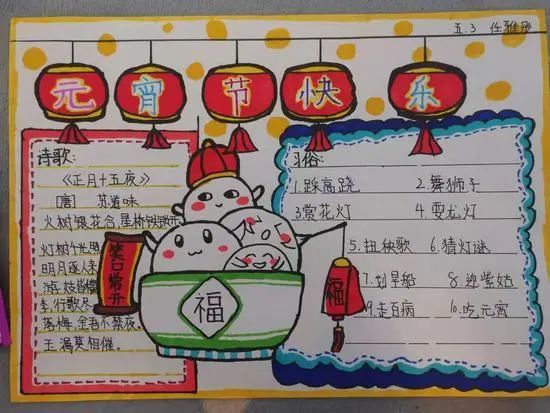 五.3 任雅
元宵节快乐
诗歌:
《正月十五夜》
[唐] 苏道味
火树银花合,星桥铁锁开
灯树
明月逐人
游妓皆
李,行歌尽
落梅,金吾不禁夜,
玉漏莫相催。
笑口常开
福
福
习俗:
1.踩高跷 2.舞狮子
3赏花灯 4.耍龙灯
5.扭秧歌 6.猜灯谜
7.划旱船 8.迎紫姑
9.走百病 10.吃元宵